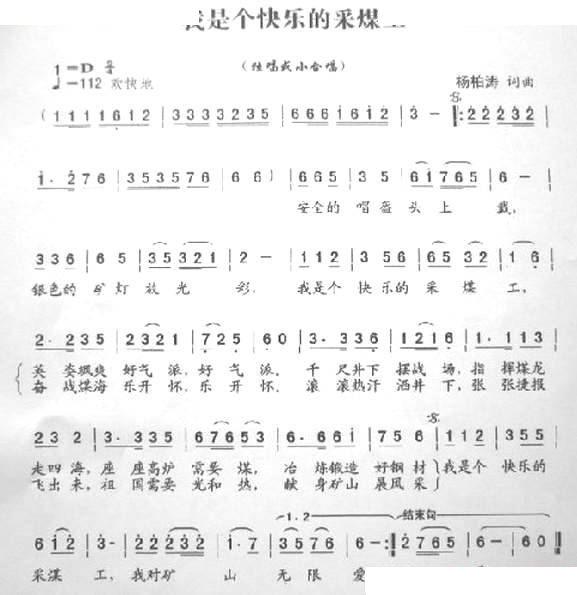 我是个快乐的采煤
1=D
♩=112 欢快地
(独唱或小合唱)
杨柏涛 词曲
(1 1 1 1 6 1 2 | 3 3 3 3 2 3 5 | 6 6 6 1 6 1 2 | 3 - ‖: 2 2 2 3 2 |
1· 2 7 6 | 3 5 3 5 7 6 | 6 6) | 6 6 5 | 3 5 | 6 1 7 6 5 | 6 - |
安全的 唱盔 头 上 戴,
3 3 6 | 6 5 | 3 5 3 2 1 | 2 - | 1 1 2 | 3 5 6 | 6 5 3 2 | 1 6 |
银色的 矿灯 放光 彩. 我是个 快乐的 采 煤 工,
2· 2 3 5 | 2 3 2 1 | 7 2 5 | 6 0 | 3· 3 3 6 | 1 2 1 6 | 1· 1 1 3 |
英 姿飒爽 好气 派,好 气 派。 千 尺井下 摆战 场,指 挥煤龙
奋 战煤海 乐开 怀,乐 开 怀. 滚 滚热汗 洒井 下,张 张捷报
2 3 2 | 3· 3 3 5 | 6 7 6 5 3 | 6· 6 6 1 | 7 5 6 | 1 1 2 | 3 5 5 |
走四 海, 座 座高炉 需要 煤, 冶 炼锻造 好钢 材 我是个 快乐的
飞出 来,祖 国需要 光和 热, 献 身矿山 晨风 采
1.2
结束句
6 1 2 | 3 - | 2 2 2 3 2 | 1· 7 | 3 5 7 6 | 6 - :‖ 2 7 6 5 | 6 - | 6 0 ‖
采煤 工,我对矿 山 无限 爱